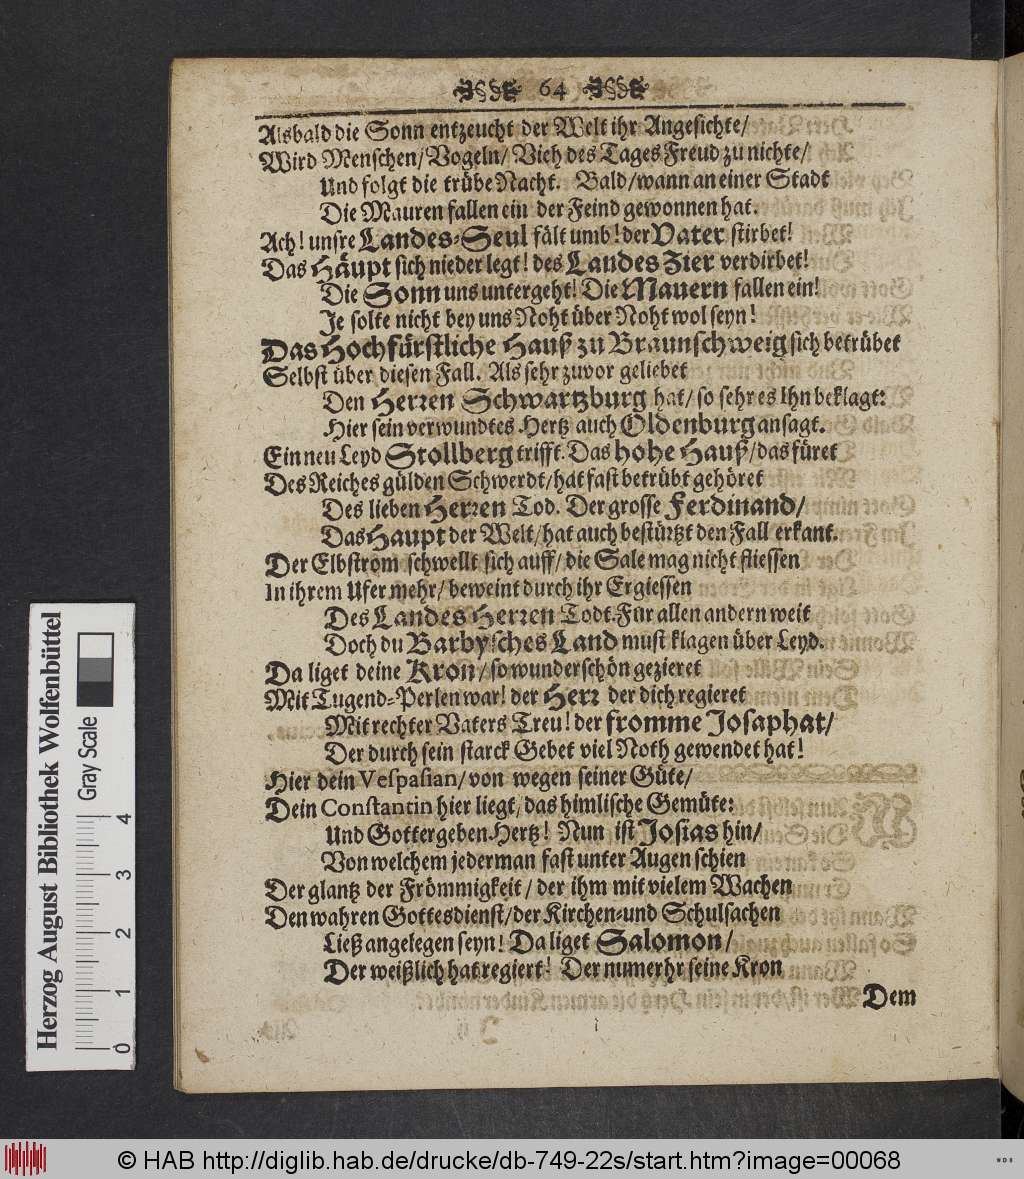 64
Alsbald die Sonn entzeucht der Welt ihr Angesichte/
Wird Menschen/ Vogeln/ Vieh des Tages Freud zu nichte/
Und folgt die trübe Nacht. Bald/ wann an einer Stadt
Die Mauren fallen ein der Feind gewonnen hat.
Ach! unsre Landes-Seul fält umb! der Vater stirbet!
Das Häupt sich nieder legt! des Landes Zier verdirbet!
Die Sonn uns untergeht! Die Mauern fallen ein!
Je solte nicht bey uns Noht über Noht wol seyn!
Das Hochfürstliche Hauß zu Braunschweig sich betrübet
Selbst über diesen Fall. Als sehr zuvor geliebet
Den Herren Schwartzburg hat/ so sehr es Ihn beklagt:
Hier sein verwundtes Hertz auch Oldenburg ansagt.
Ein neu Leyd Stollberg trifft. Das hohe Hauß/ das füret
Des Reiches gülden Schwerdt/ hat fast betrübt gehöret
Des lieben Herren Tod. Der grosse Ferdinand/
Das Haupt der Welt/ hat auch bestürtzt den Fall erkant.
Der Elbstrom schwellt sich auff/ die Sale mag nicht fliessen
In ihrem Ufer mehr/ beweint durch ihr Ergiessen
Des Landes Herren Todt. Für allen andern weit
Doch du Barbysches Land must klagen über Leyd.
Da liget deine Kron/ so wunderschön gezieret
Mit Tugend-Perlen war! der Herr der dich regieret
Mit rechter Vaters Treu! der fromme Josaphat/
Der durch sein starck Gebet viel Noth gewendet hat!
Hier dein Vespasian/ von wegen seiner Güte/
Dein Constantin hier liegt/ das himlische Gemüte:
Und Gott ergeben Hertz! Nun ist Josias hin/
Von welchem jederman fast unter Augen schien
Der glantz der Frömmigkeit/ der ihm mit vielem Wachen
Den wahren Gottesdienst/ der Kirchen-und Schulsachen
Ließ angelegen seyn! Da liget Salomon/
Der weißlich hat regiert! Der numerhr seine Kron
Dem
Herzog August Bibliothek Wolfenbüttel
Gray Scale
0 1 2 3 4
© HAB http://diglib.hab.de/drucke/db-749-22s/start.htm?image=00068